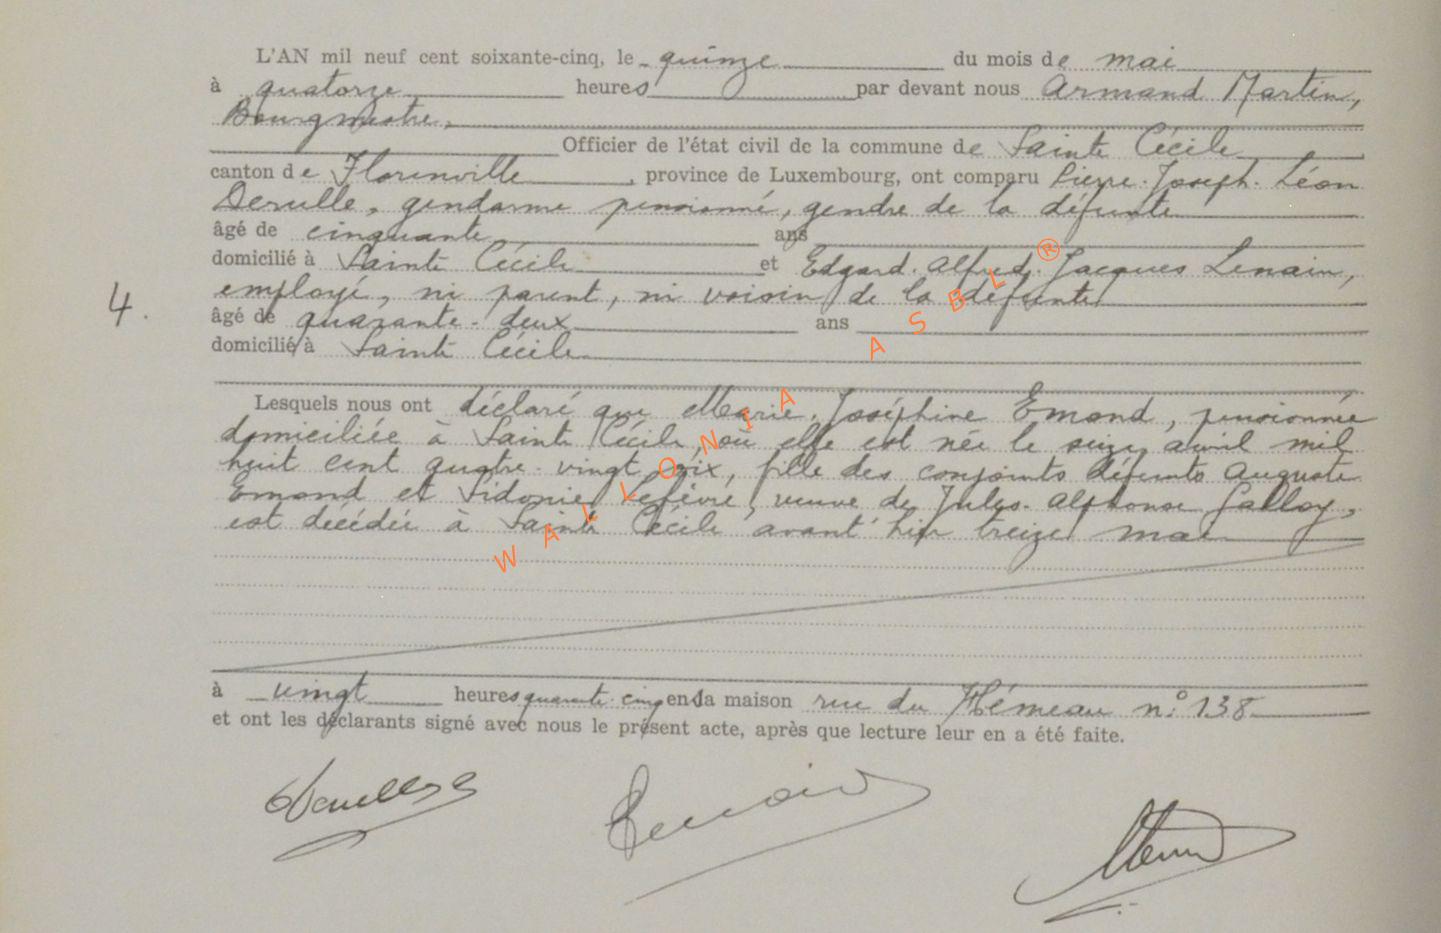 L'AN mil neuf cent soixante-cinq, le quinze du mois de mai
à quatorze heures par devant nous Armand Martin,
Bourgmestre,
Officier de l'état civil de la commune de Sainte Cécile
canton de Florenville, province de Luxembourg, ont comparu Pierre-Joseph-Léon
Derulle, gendarme pensionné, gendre de la défunte
âgé de cinquante ans
domicilié à Sainte Cécile et Edgard-Alfred-Jacques Lenain,
employé, ni parent, ni voisin de la défunte
4. âgé de quarante-deux ans
domicilié à Sainte Cécile
Lesquels nous ont déclaré que Marie-Joséphine Emond, pensionnée
domiciliée à Sainte Cécile, où elle est née le seize avril mil
huit cent quatre-vingt six, fille des conjoints défunts Auguste
Emond et Sidonie Lefèvre, veuve de Jules-Alphonse Galloy,
est décédée à Sainte Cécile avant hier treize mai
à vingt heures quarante-cinq en la maison rue du Héneau n° 138
et ont les déclarants signé avec nous le présent acte, après que lecture leur en a été faite.
WALLONIA ASBL ®